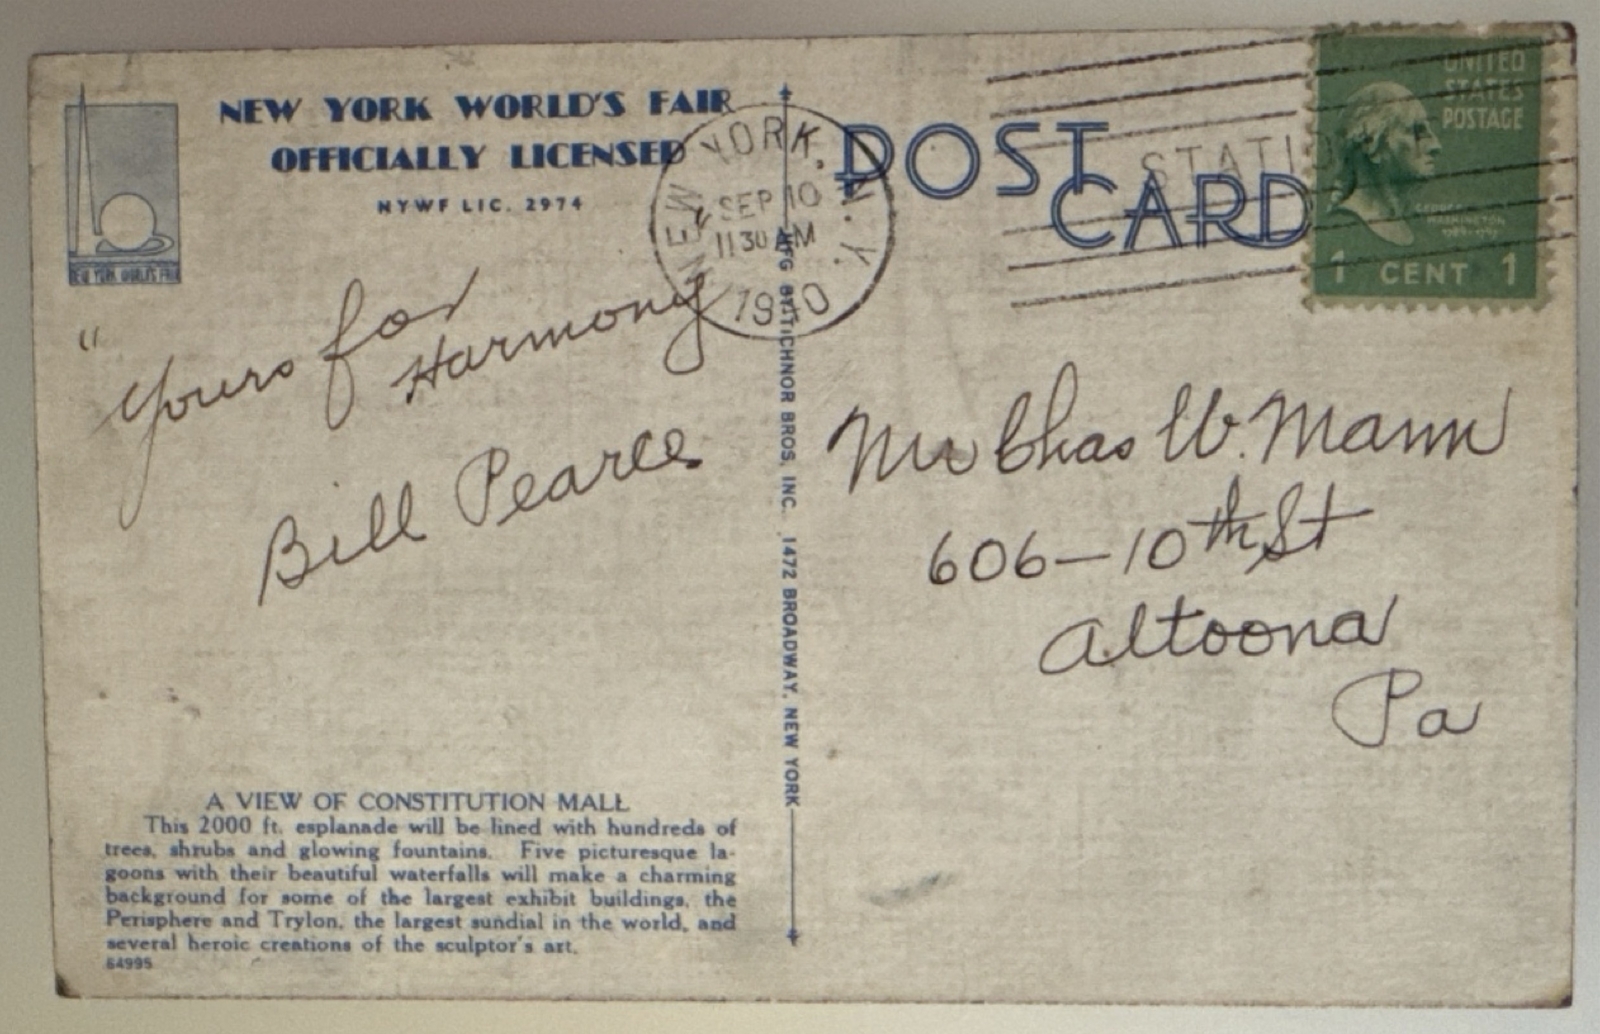 NEW YORK WORLD'S FAIR
OFFICIALLY LICENSED
NYWF LIC. 2974
NEW YORK WORLD'S FAIR
"Yours for
Harmony
Bill Pearce
A VIEW OF CONSTITUTION MALL
This 2000 ft. esplanade will be lined with hundreds of
trees, shrubs and glowing fountains. Five picturesque la-
goons with their beautiful waterfalls will make a charming
background for some of the largest exhibit buildings, the
Perisphere and Trylon, the largest sundial in the world, and
several heroic creations of the sculptor's art.
64995
MFG BY TICHNOR BROS. INC. 1472 BROADWAY, NEW YORK
NEW YORK, N.Y.
SEP 10
11 30 AM
1940
POST
CARD
UNITED
STATES
POSTAGE
GEORGE
WASHINGTON
1789-1797
1 CENT 1
Mr Chas W. Mann
606-10th St
Altoona
Pa